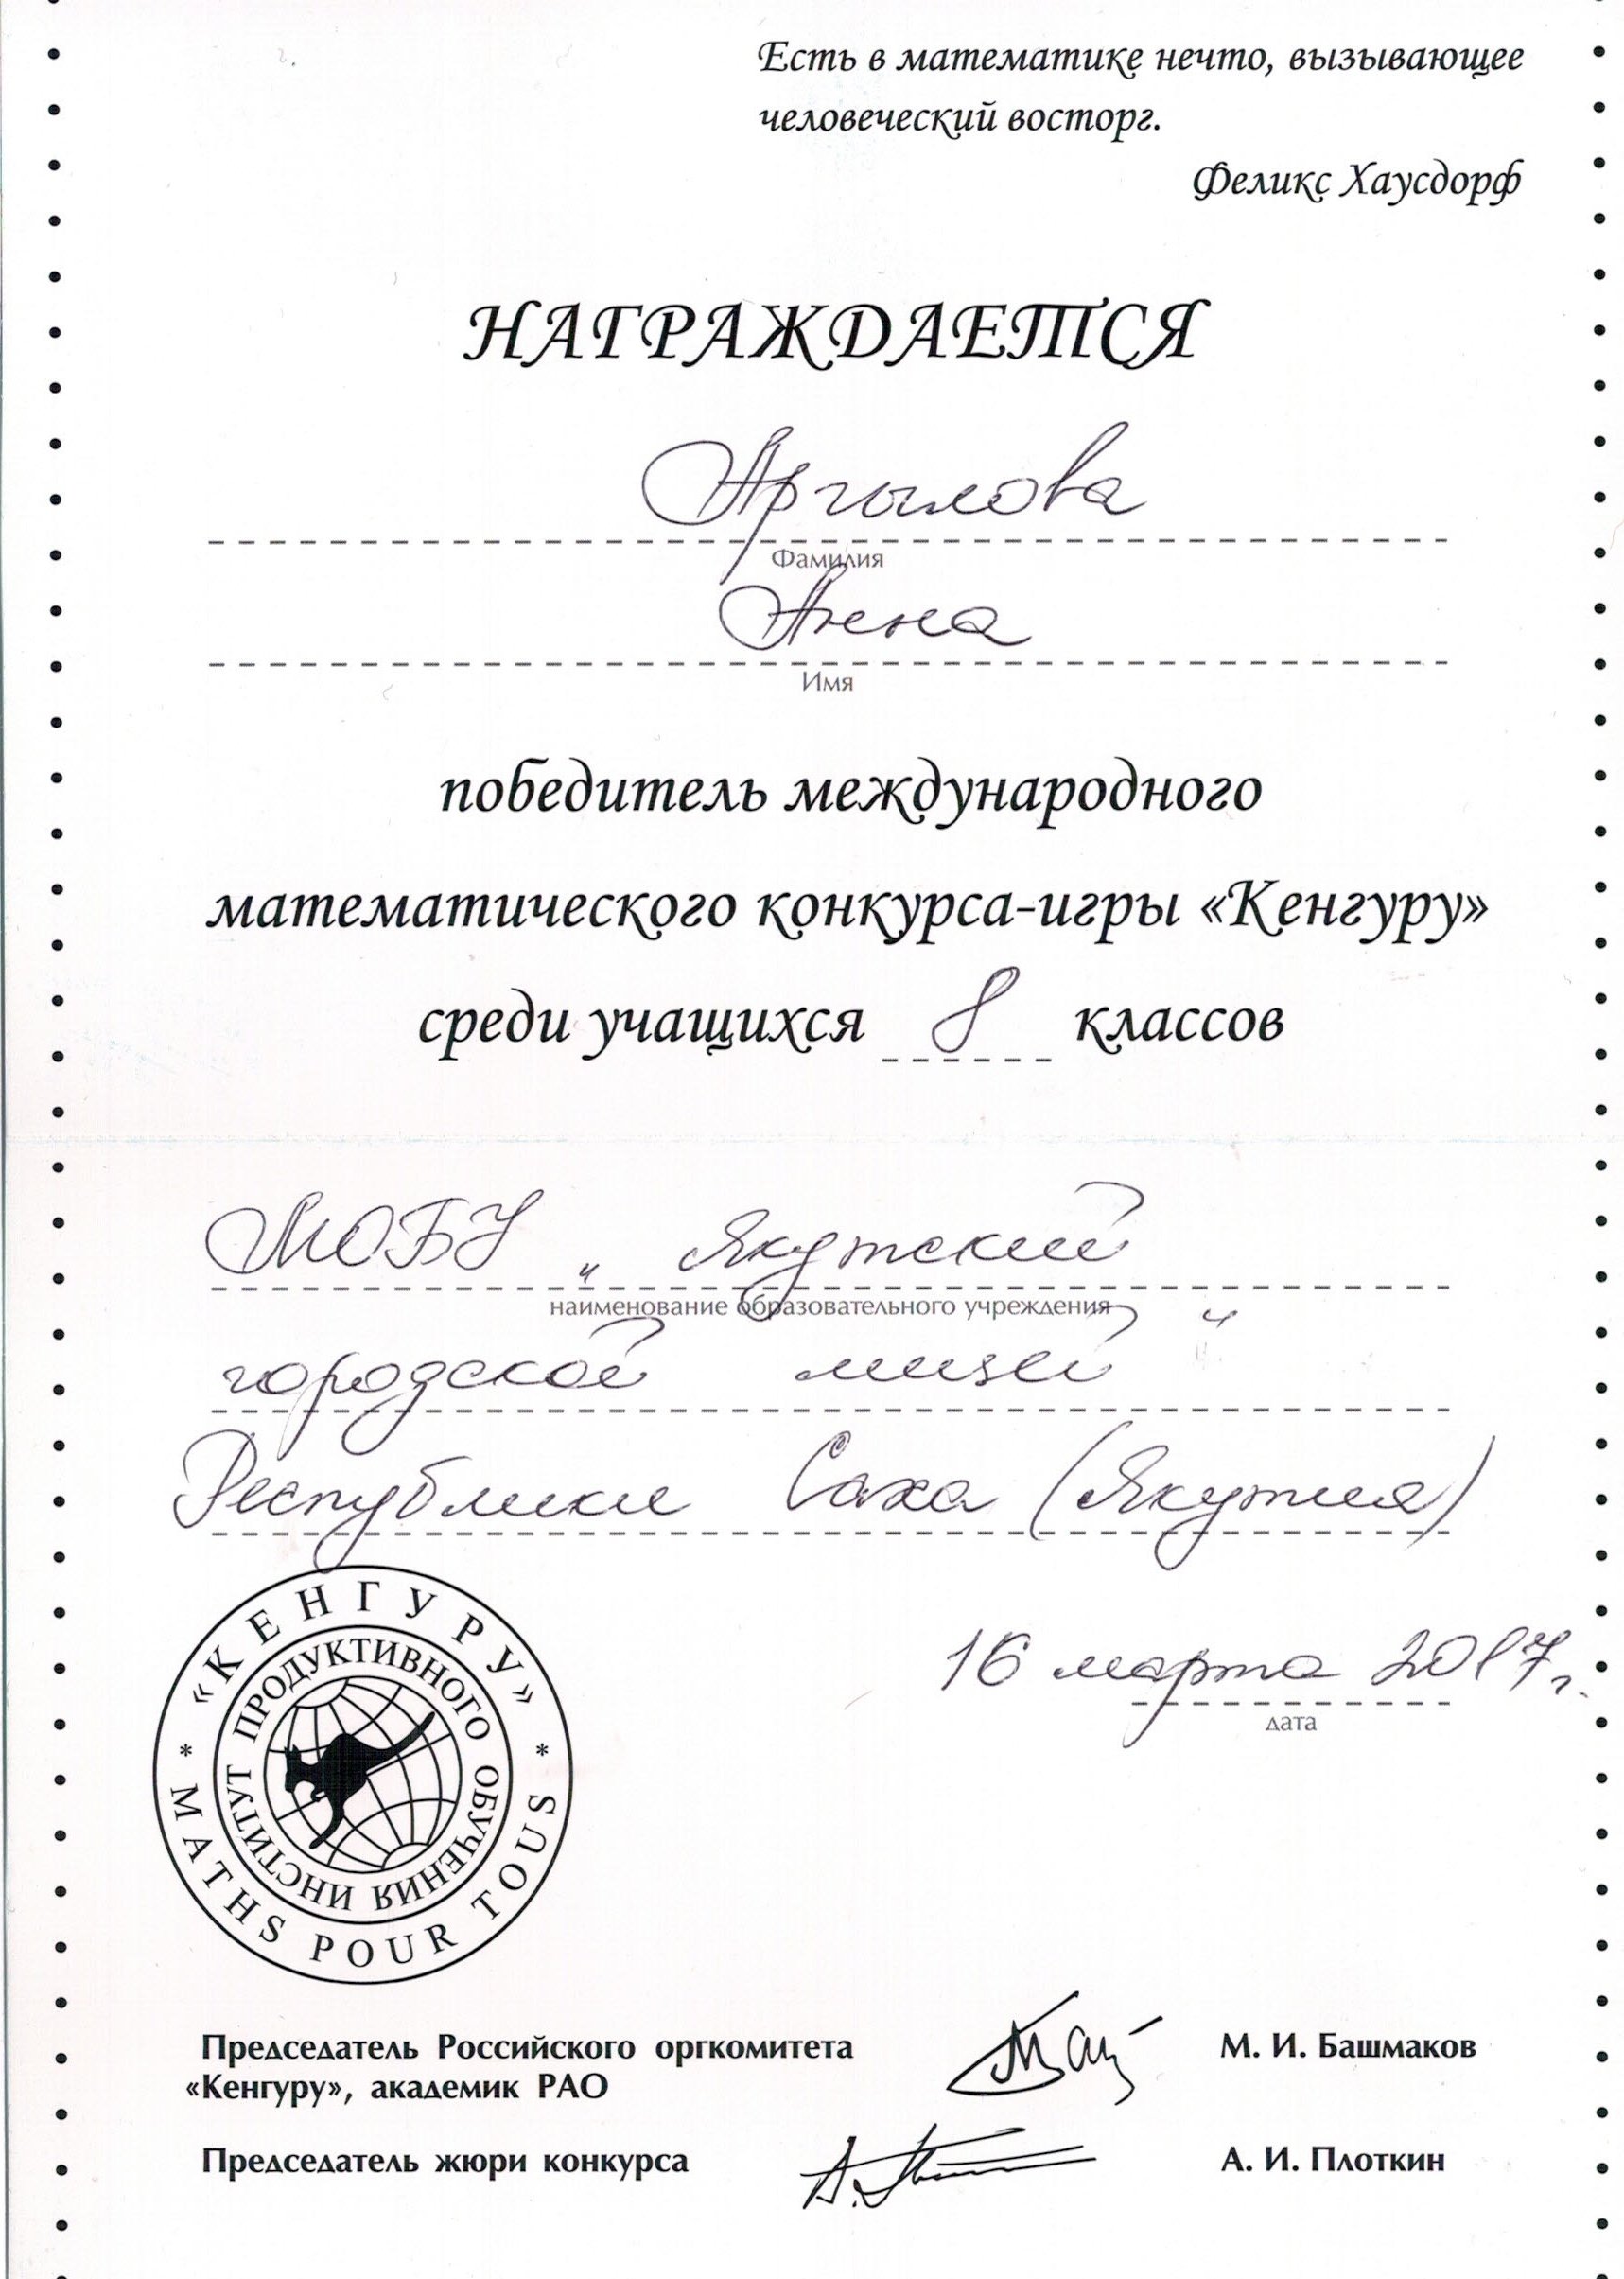 Есть в математике нечто, вызывающее
человеческий восторг.
Феликс Хаусдорф
НАГРАЖДАЕТСЯ
Аргылова
Фамилия
Анна
Имя
победитель международного
математического конкурса-игры «Кенгуру»
среди учащихся 8 классов
МОБУ „Якутский
наименование образовательного учреждения
городской лицей“
Республики Саха (Якутия)
«КЕНГУРУ»
ИНСТИТУТ ПРОДУКТИВНОГО ОБУЧЕНИЯ
* MATHS POUR TOUS *
16 марта 2017г.
дата
Председатель Российского оргкомитета
«Кенгуру», академик РАО
М. И. Башмаков
Председатель жюри конкурса
А. И. Плоткин